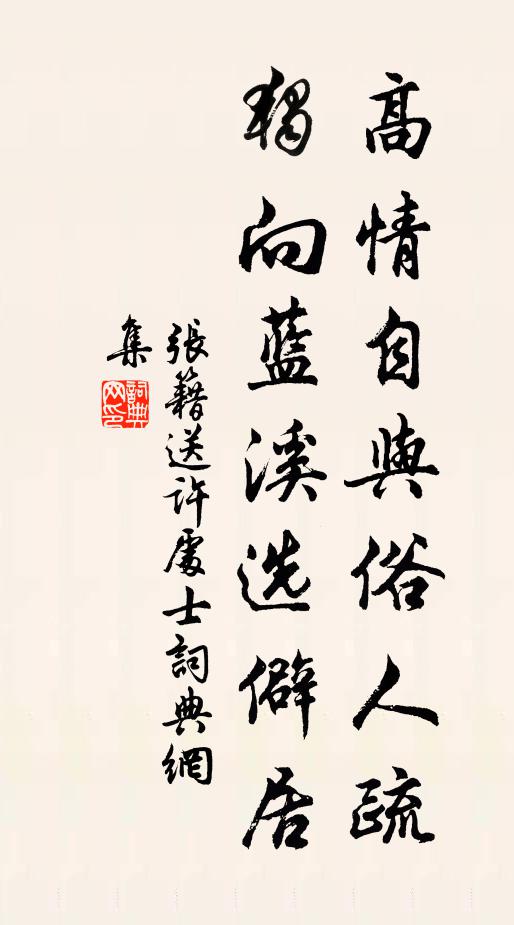 高情自與俗人疏
獨向藍溪选僻居
張籍送許處士詞典網
集
詞典
网印